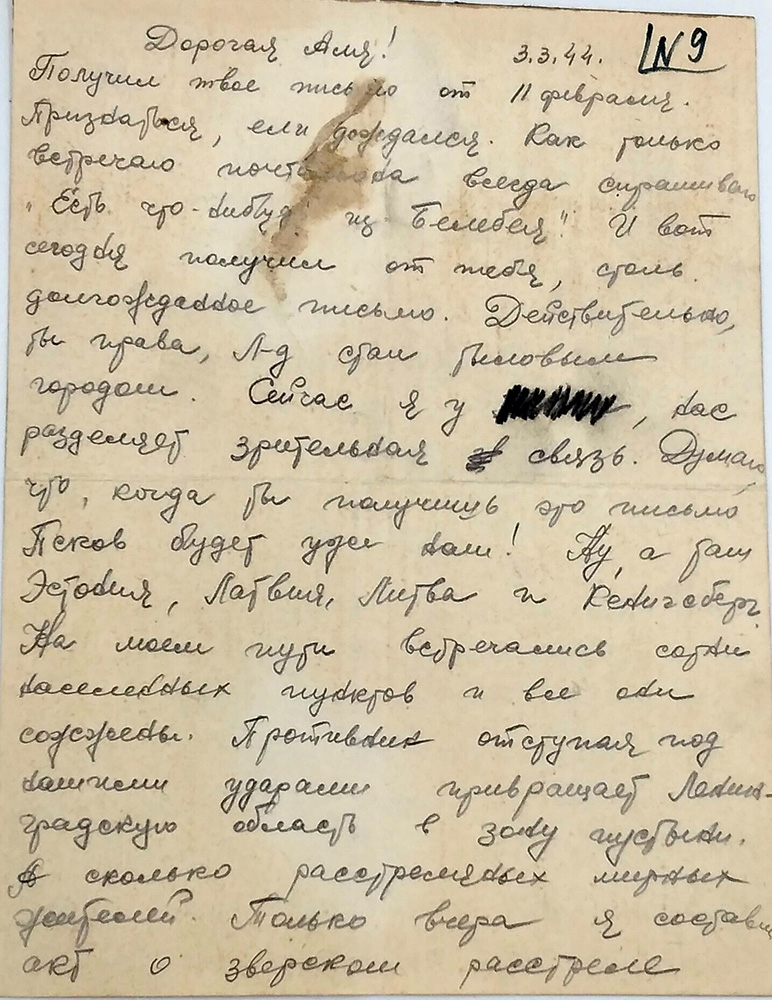 Дорогая Аля! 3.3.44. №9
Получил твое письмо от 11 февраля.
Признаться, еле дождался. Как только
встречаю почтальона всегда спрашиваю
"Есть что-нибудь из Белебея"! И вот
сегодня получил от тебя, столь
долгожданное письмо. Действительно,
ты права, Л-д стал тыловым
городом. Сейчас я у , нас
разделяет зрительная связь. Думаю,
что, когда ты получишь это письмо
Псков будет уже наш! Ну, а там
Эстония, Латвия, Литва и Кенигсберг.
На моем пути встречались сотни
населенных пунктов и все они
сожжены. Противник отступая под
нашими ударами превращает Ленин-
градскую область в зону пустыни.
А сколько расстреляных мирных
жителей. Только вчера я составил
акт о зверском расстреле